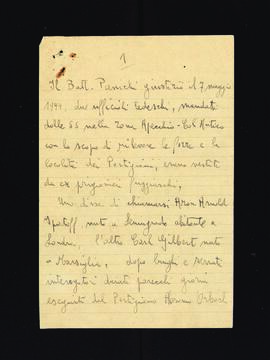 1
Il Batt. Panichi giustiziò il 7 maggio
1944, due ufficiali tedeschi, mandati
dalle SS nella zona Apecchio-Col Antico
con lo scopo di rilevare le forze e la
località dei Partigiani, erano vestiti
da ex prigionieri
Uno disse di chiamarsi Aron Arnold
nato a abitante a
Londra, l'altro Carl Gilbert nato
a Marsiglia, dopo lunghi e serrati
interrogatori durati parecchi giorni
eseguiti dal Partigiano